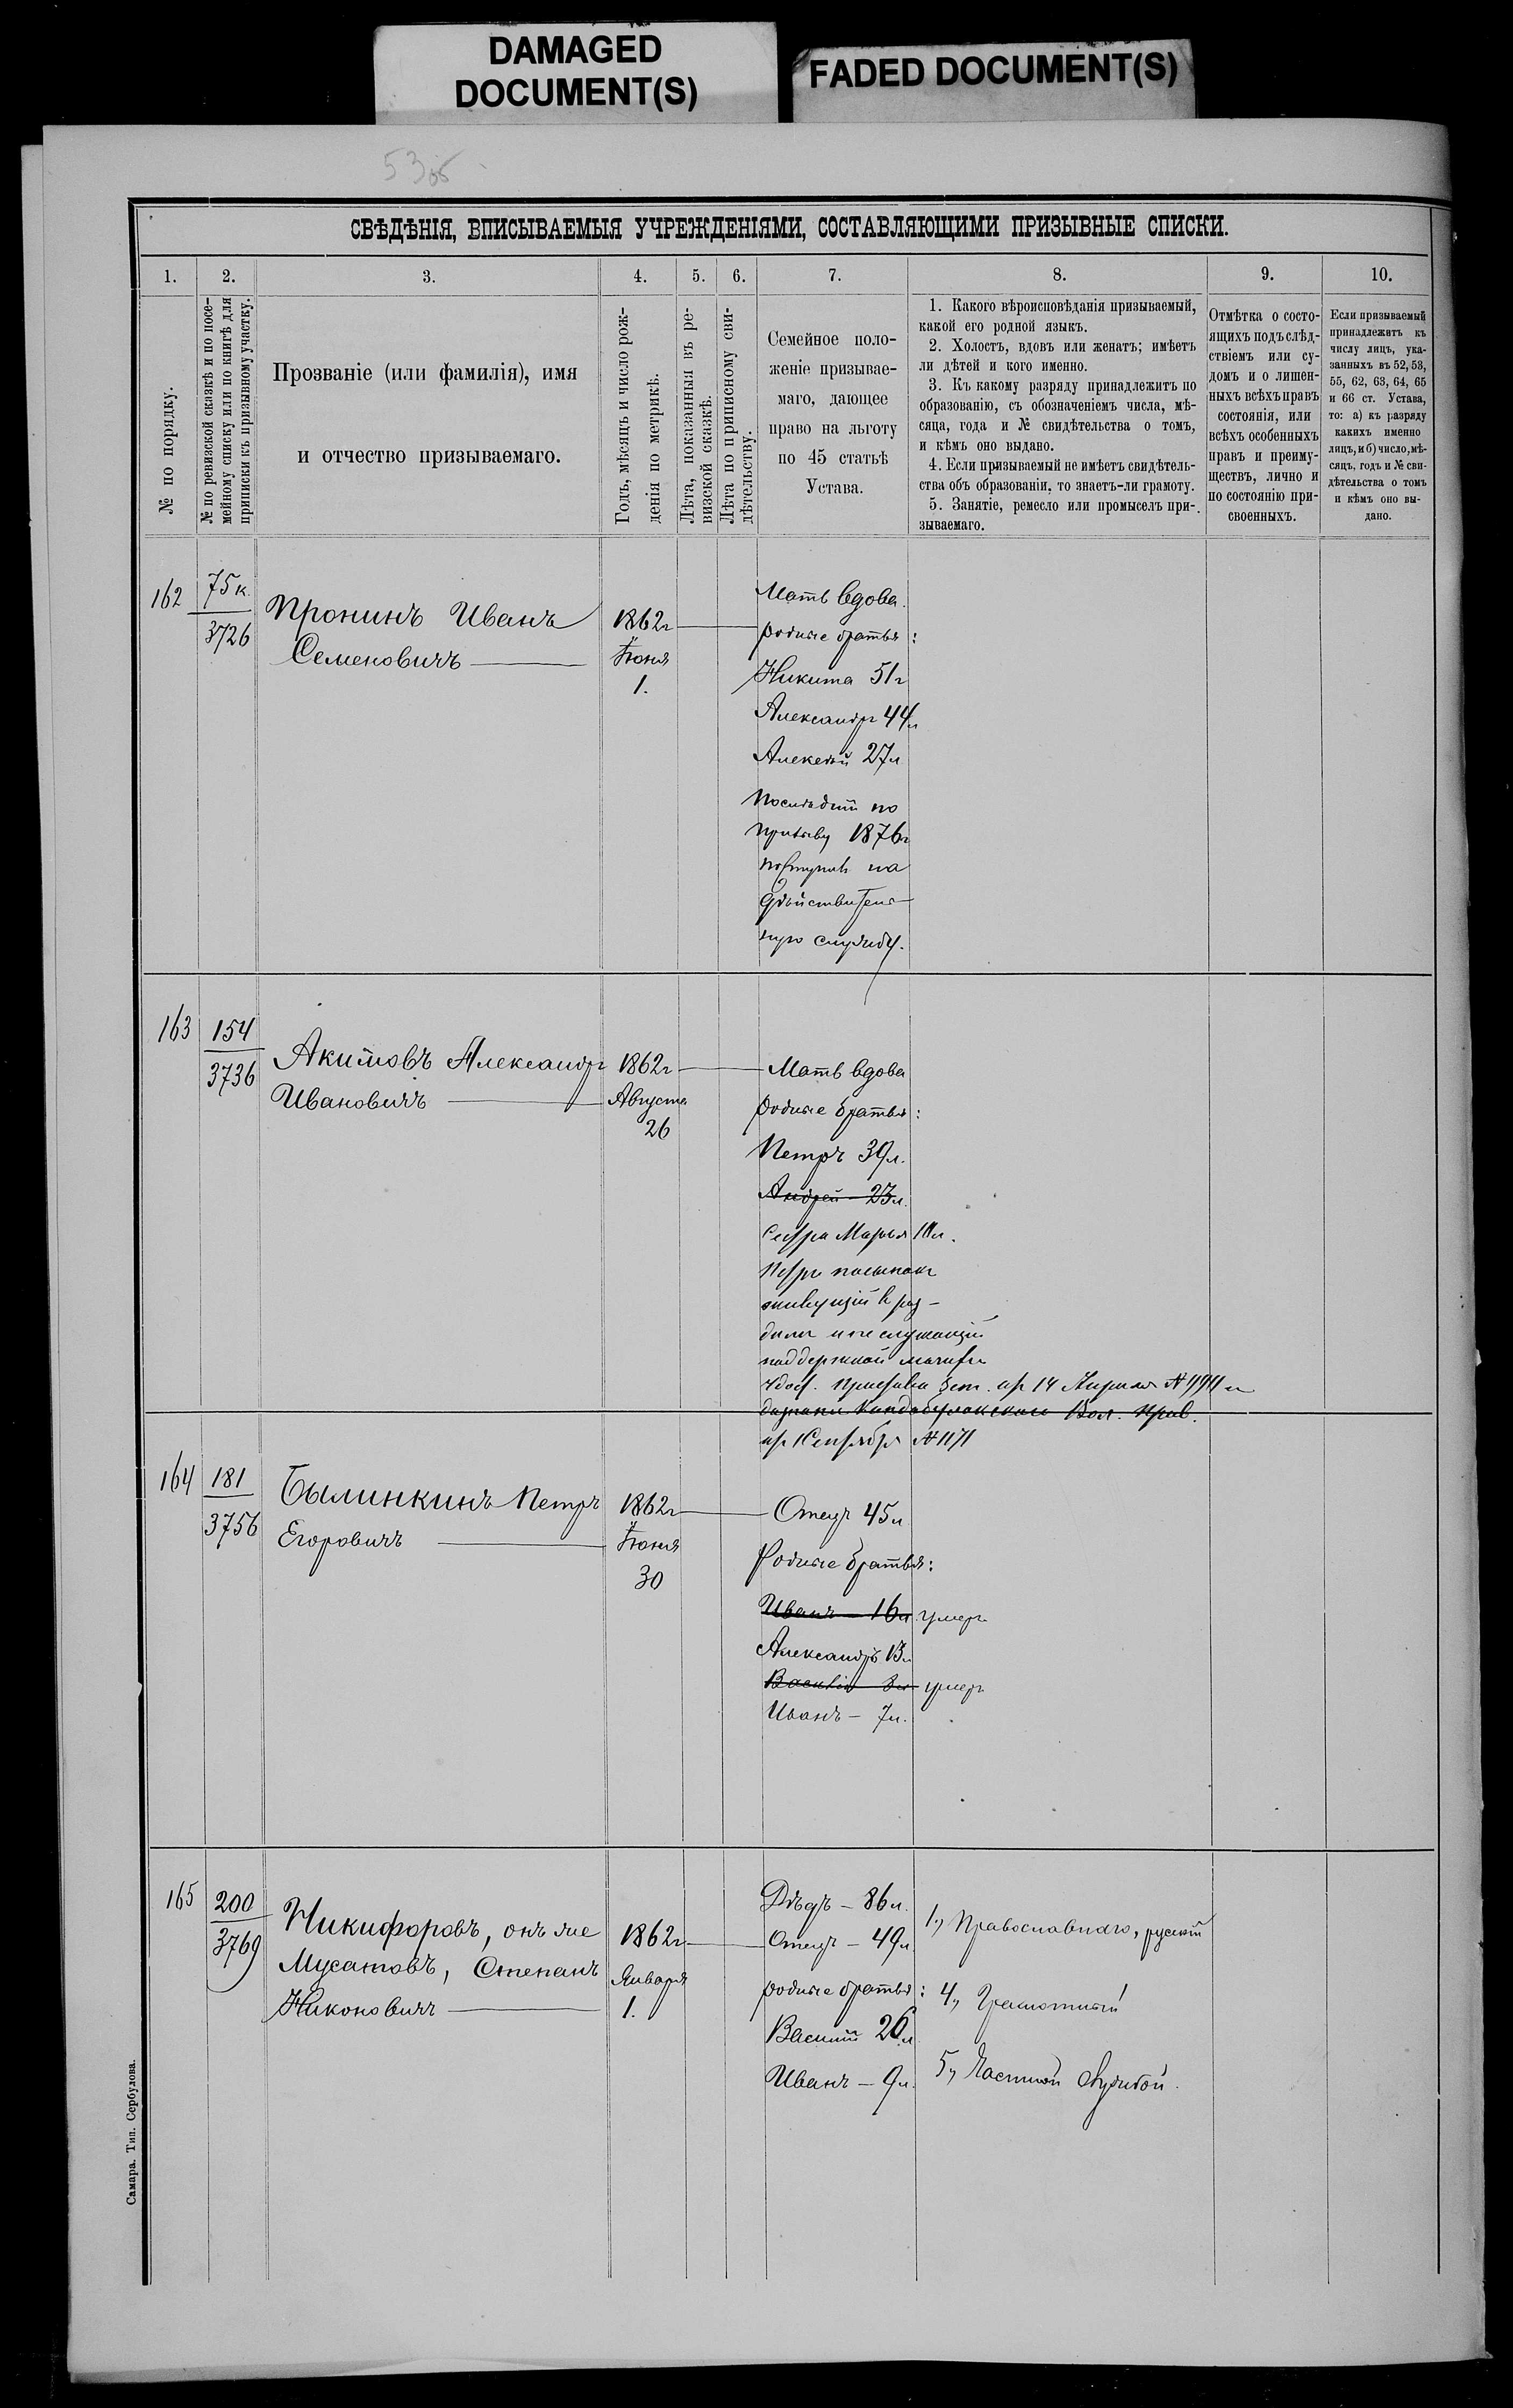 DAMAGED
DOCUMENT(S)
FADED DOCUMENT(S)
53об
СВѢДѢНІЯ, ВПИСЫВАЕМЫЯ УЧРЕЖДЕНІЯМИ, СОСТАВЛЯЮЩИМИ ПРИЗЫВНЫЕ СПИСКИ.
1. 2. 3. 4. 5. 6. 7. 8. 9. 10.
№ по порядку.
№ по ревизской сказкѣ и по посе-
мейному списку или по книгѣ для
приписки къ призывному участку.
Прозваніе (или фамилія), имя
и отчество призываемаго.
Годъ, мѣсяцъ и число рож-
денія по метрикѣ.
Лѣта, показанныя въ ре-
визской сказкѣ.
Лѣта по приписному сви-
дѣтельству.
Семейное поло-
женіе призывае-
маго, дающее
право на льготу
по 45 статьѣ
Устава.
1. Какого вѣроисповѣданія призываемый,
какой его родной языкъ.
2. Холостъ, вдовъ или женатъ; имѣетъ
ли дѣтей и кого именно.
3. Къ какому разряду принадлежитъ по
образованію, съ обозначеніемъ числа, мѣ-
сяца, года и № свидѣтельства о томъ,
и кѣмъ оно выдано.
4. Если призываемый не имѣетъ свидѣтель-
ства объ образованіи, то знаетъ-ли грамоту.
5. Занятіе, ремесло или промыселъ при-
зываемаго.
Отмѣтка о состо-
ящихъ подъ слѣд-
ствіемъ или су-
домъ и о лишен-
ныхъ всѣхъ правъ
состоянія, или
всѣхъ особенныхъ
правъ и преиму-
ществъ, лично и
по состоянію при-
своенныхъ.
Если призываемый
принадлежитъ къ
числу лицъ, ука-
занныхъ въ 52, 53,
55, 62, 63, 64, 65
и 66 ст. Устава,
то: а) къ разряду
какихъ именно
лицъ, и б) число, мѣ-
сяцъ, годъ и № сви-
дѣтельства о томъ
и кѣмъ оно вы-
дано.
162
75к.
3726
Пронинъ Иванъ
Семеновичъ
1862г
Іюня
1.
Мать вдова.
родные братья:
Никита 51г
Александръ 44л
Алексѣй 27л
Послѣдній по
призыву 1876г
поступилъ на
дѣйствитель-
ную службу.
163
154
3736
Акимовъ Александръ
Ивановичъ
1862г
Августа
26
Мать вдова
родные братья:
Петръ 39л.
Андрей — 23л.
Сестра Марья
Петръ пасынокъ
живущій в раз-
дѣлѣ и не служащій
поддержкой мачихи
14 Апрѣля
Вол. Прав.
Сентября № 1171
164
181
3756
Былинкинъ Петръ
Егоровичъ
1862г
Іюня
30
Отецъ 45л
Родные братья:
Иванъ — 16л. умеръ
Александръ 13л
Василій 8л умеръ
Иванъ — 7л.
165
200
3769
Никифоровъ, онъ же
Мусатовъ, Степанъ
Никоновичъ
1862г
Января
1.
Дѣдъ — 86л.
Отецъ — 49л
родные братья:
Василій 26л
Иванъ — 9л.
1, Православнаго, русскій
4, Грамотный
5, Частной службой.
Самара. Тип. Сербулова.